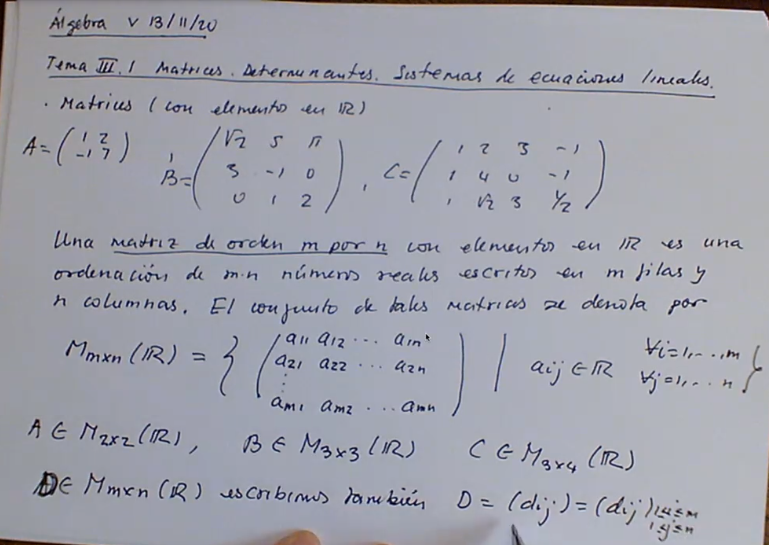 Álgebra V 13/11/20
Tema III.1 Matrices. Determinantes. Sistemas de ecuaciones lineales.
. Matrices (con elemento en ℝ)
A = ( 1 2 ; -1 7 ), B = ( √2 5 π ; 3 -1 0 ; 0 1 2 ), C = ( 1 2 3 -1 ; 1 4 0 -1 ; 1 √2 3 1/2 )
Una matriz de orden m por n con elementos en ℝ es una
ordenación de m·n números reales escritos en m filas y
n columnas. El conjunto de tales matrices se denota por
Mmxn (ℝ) = { ( a11 a12 ... a1n ; a21 a22 ... a2n ; ⋮ ; am1 am2 ... amn ) | aij ∈ ℝ ∀i=1,...,m ∀j=1,...n }
A ∈ M2x2 (ℝ), B ∈ M3x3 (ℝ) C ∈ M3x4 (ℝ)
D ∈ Mmxn (ℝ) escribimos también D = (dij) = (dij) 1≤i≤m 1≤j≤n